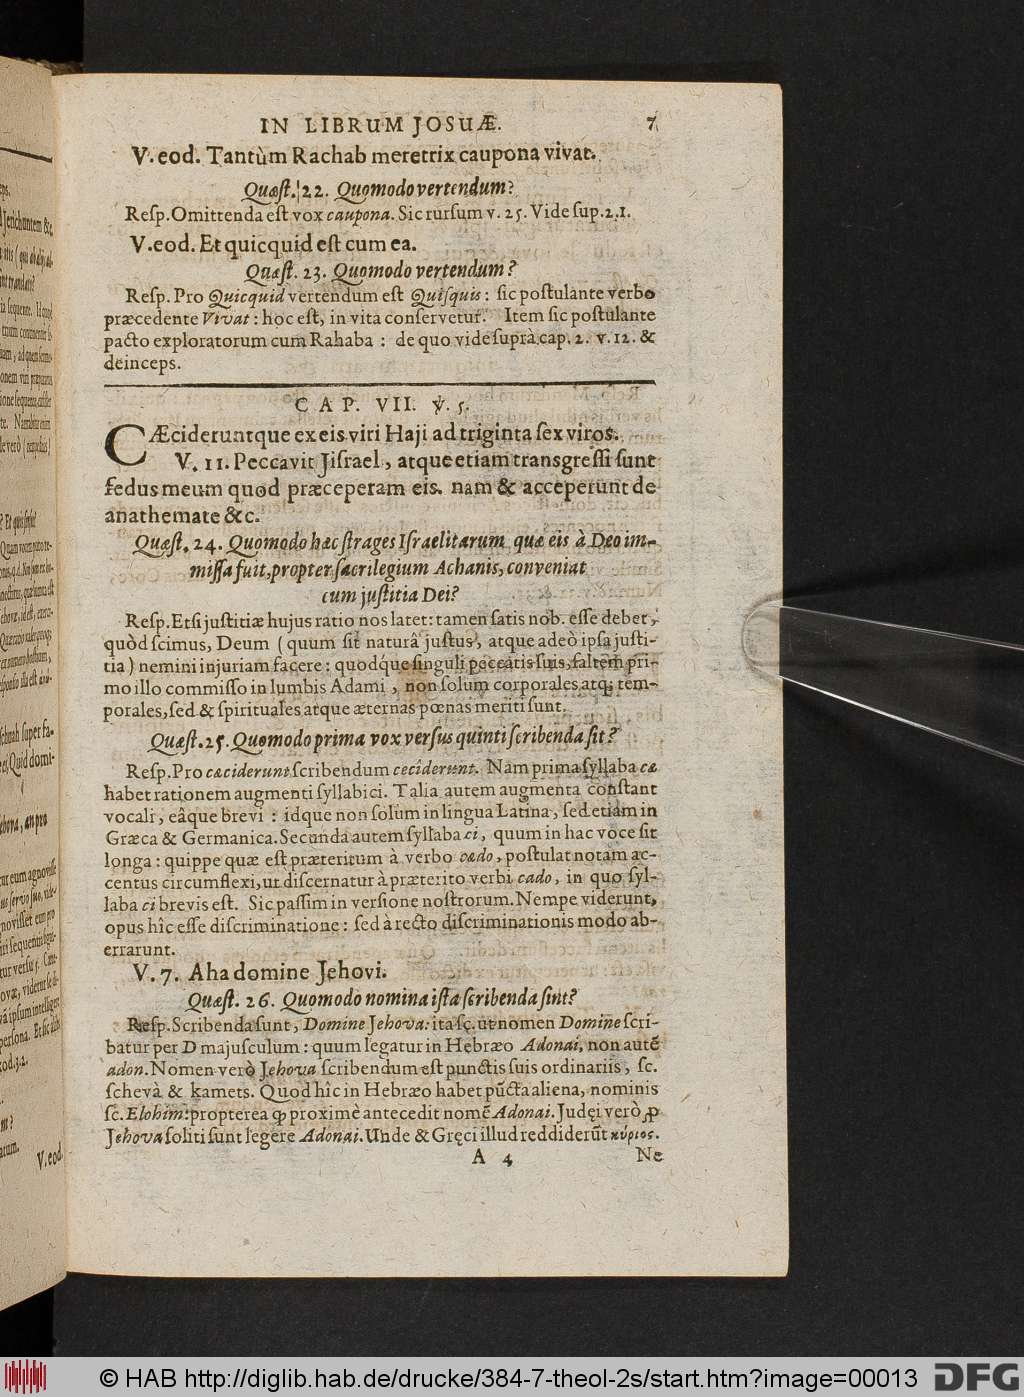 IN LIBRUM JOSUÆ. 7
V. eod. Tantùm Rachab meretrix caupona vivat.
Quæſt. 22. Quomodo vertendum?
Reſp. Omittenda eſt vox caupona. Sic rurſum v. 25. Vide ſup. 2. 1.
V. eod. Et quicquid eſt cum ea.
Quæſt. 23. Quomodo vertendum?
Reſp. Pro Quicquid vertendum eſt Quiſquis: ſic poſtulante verbo
præcedente Vivat: hoc eſt, in vita conſervetur. Item ſic poſtulante
pacto exploratorum cum Rahaba: de quo vide ſuprà cap. 2. v. 12. &
deinceps.
CAP. VII. ℣. 5.
CÆcideruntque ex eis viri Haji ad triginta ſex viros.
V. 11. Peccavit Jiſrael, atque etiam transgreſſi ſunt
fedus meum quod præceperam eis. nam & acceperunt de
anathemate &c.
Quæſt. 24. Quomodo hæc ſtrages Iſraelitarum quæ eis à Deo im-
miſſa fuit, propter ſacrilegium Achanis, conveniat
cum juſtitia Dei?
Reſp. Etſi juſtitiæ hujus ratio nos latet: tamen ſatis nob. eſſe debet,
quòd ſcimus, Deum (quum ſit naturâ juſtus, atque adeò ipſa juſti-
tia) nemini injuriam facere: quodq́ue ſinguli peccatis ſuis, ſaltem pri-
mo illo commiſſo in lumbis Adami, non ſolùm corporales atq; tem-
porales, ſed & ſpirituales atque æternas pœnas meriti ſunt.
Quæſt. 25. Quomodo prima vox verſus quinti ſcribenda ſit?
Reſp. Pro cæciderunt ſcribendum ceciderunt. Nam prima ſyllaba cæ
habet rationem augmenti ſyllabici. Talia autem augmenta conſtant
vocali, eâque brevi: idque non ſolum in lingua Latina, ſed etiam in
Græca & Germanica. Secunda autem ſyllaba ci, quum in hac voce ſit
longa: quippe quæ eſt præteritum à verbo cædo, poſtulat notam ac-
centus circumflexi, ut diſcernatur à præterito verbi cado, in quo ſyl-
laba ci brevis eſt. Sic paſſim in verſione noſtrorum. Nempe viderunt,
opus hîc eſſe diſcriminatione: ſed à recto diſcriminationis modo ab-
errarunt.
V. 7. Aha domine Jehovi.
Quæſt. 26. Quomodo nomina iſta ſcribenda ſint?
Reſp. Scribenda ſunt, Domine Jehova: ita ſc. ut nomen Domine ſcri-
batur per D majuſculum: quum legatur in Hebræo Adonai, non autē
adon. Nomen verò Jehova ſcribendum eſt punctis ſuis ordinariis, ſc.
ſchevà & kamets. Quod hîc in Hebræo habet pūcta aliena, nominis
ſc. Elohim: propterea ꝙ proximè antecedit nomē Adonai. Judęi verò ꝓ
Jehova ſoliti ſunt legere Adonai. Unde & Gręci illud reddiderūt κύριος.
A 4 Ne
© HAB http://diglib.hab.de/drucke/384-7-theol-2s/start.htm?image=00013
DFG